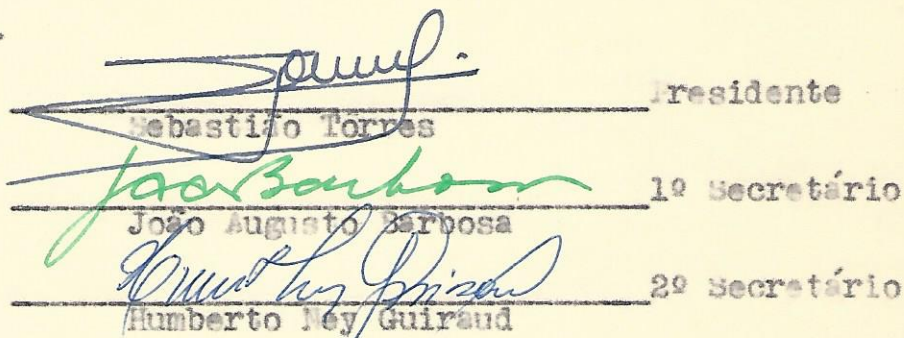 Presidente
Sebastião Tôrres
1º Secretário
João Augusto Barbosa
2º Secretário
Humberto Ney Guiraud